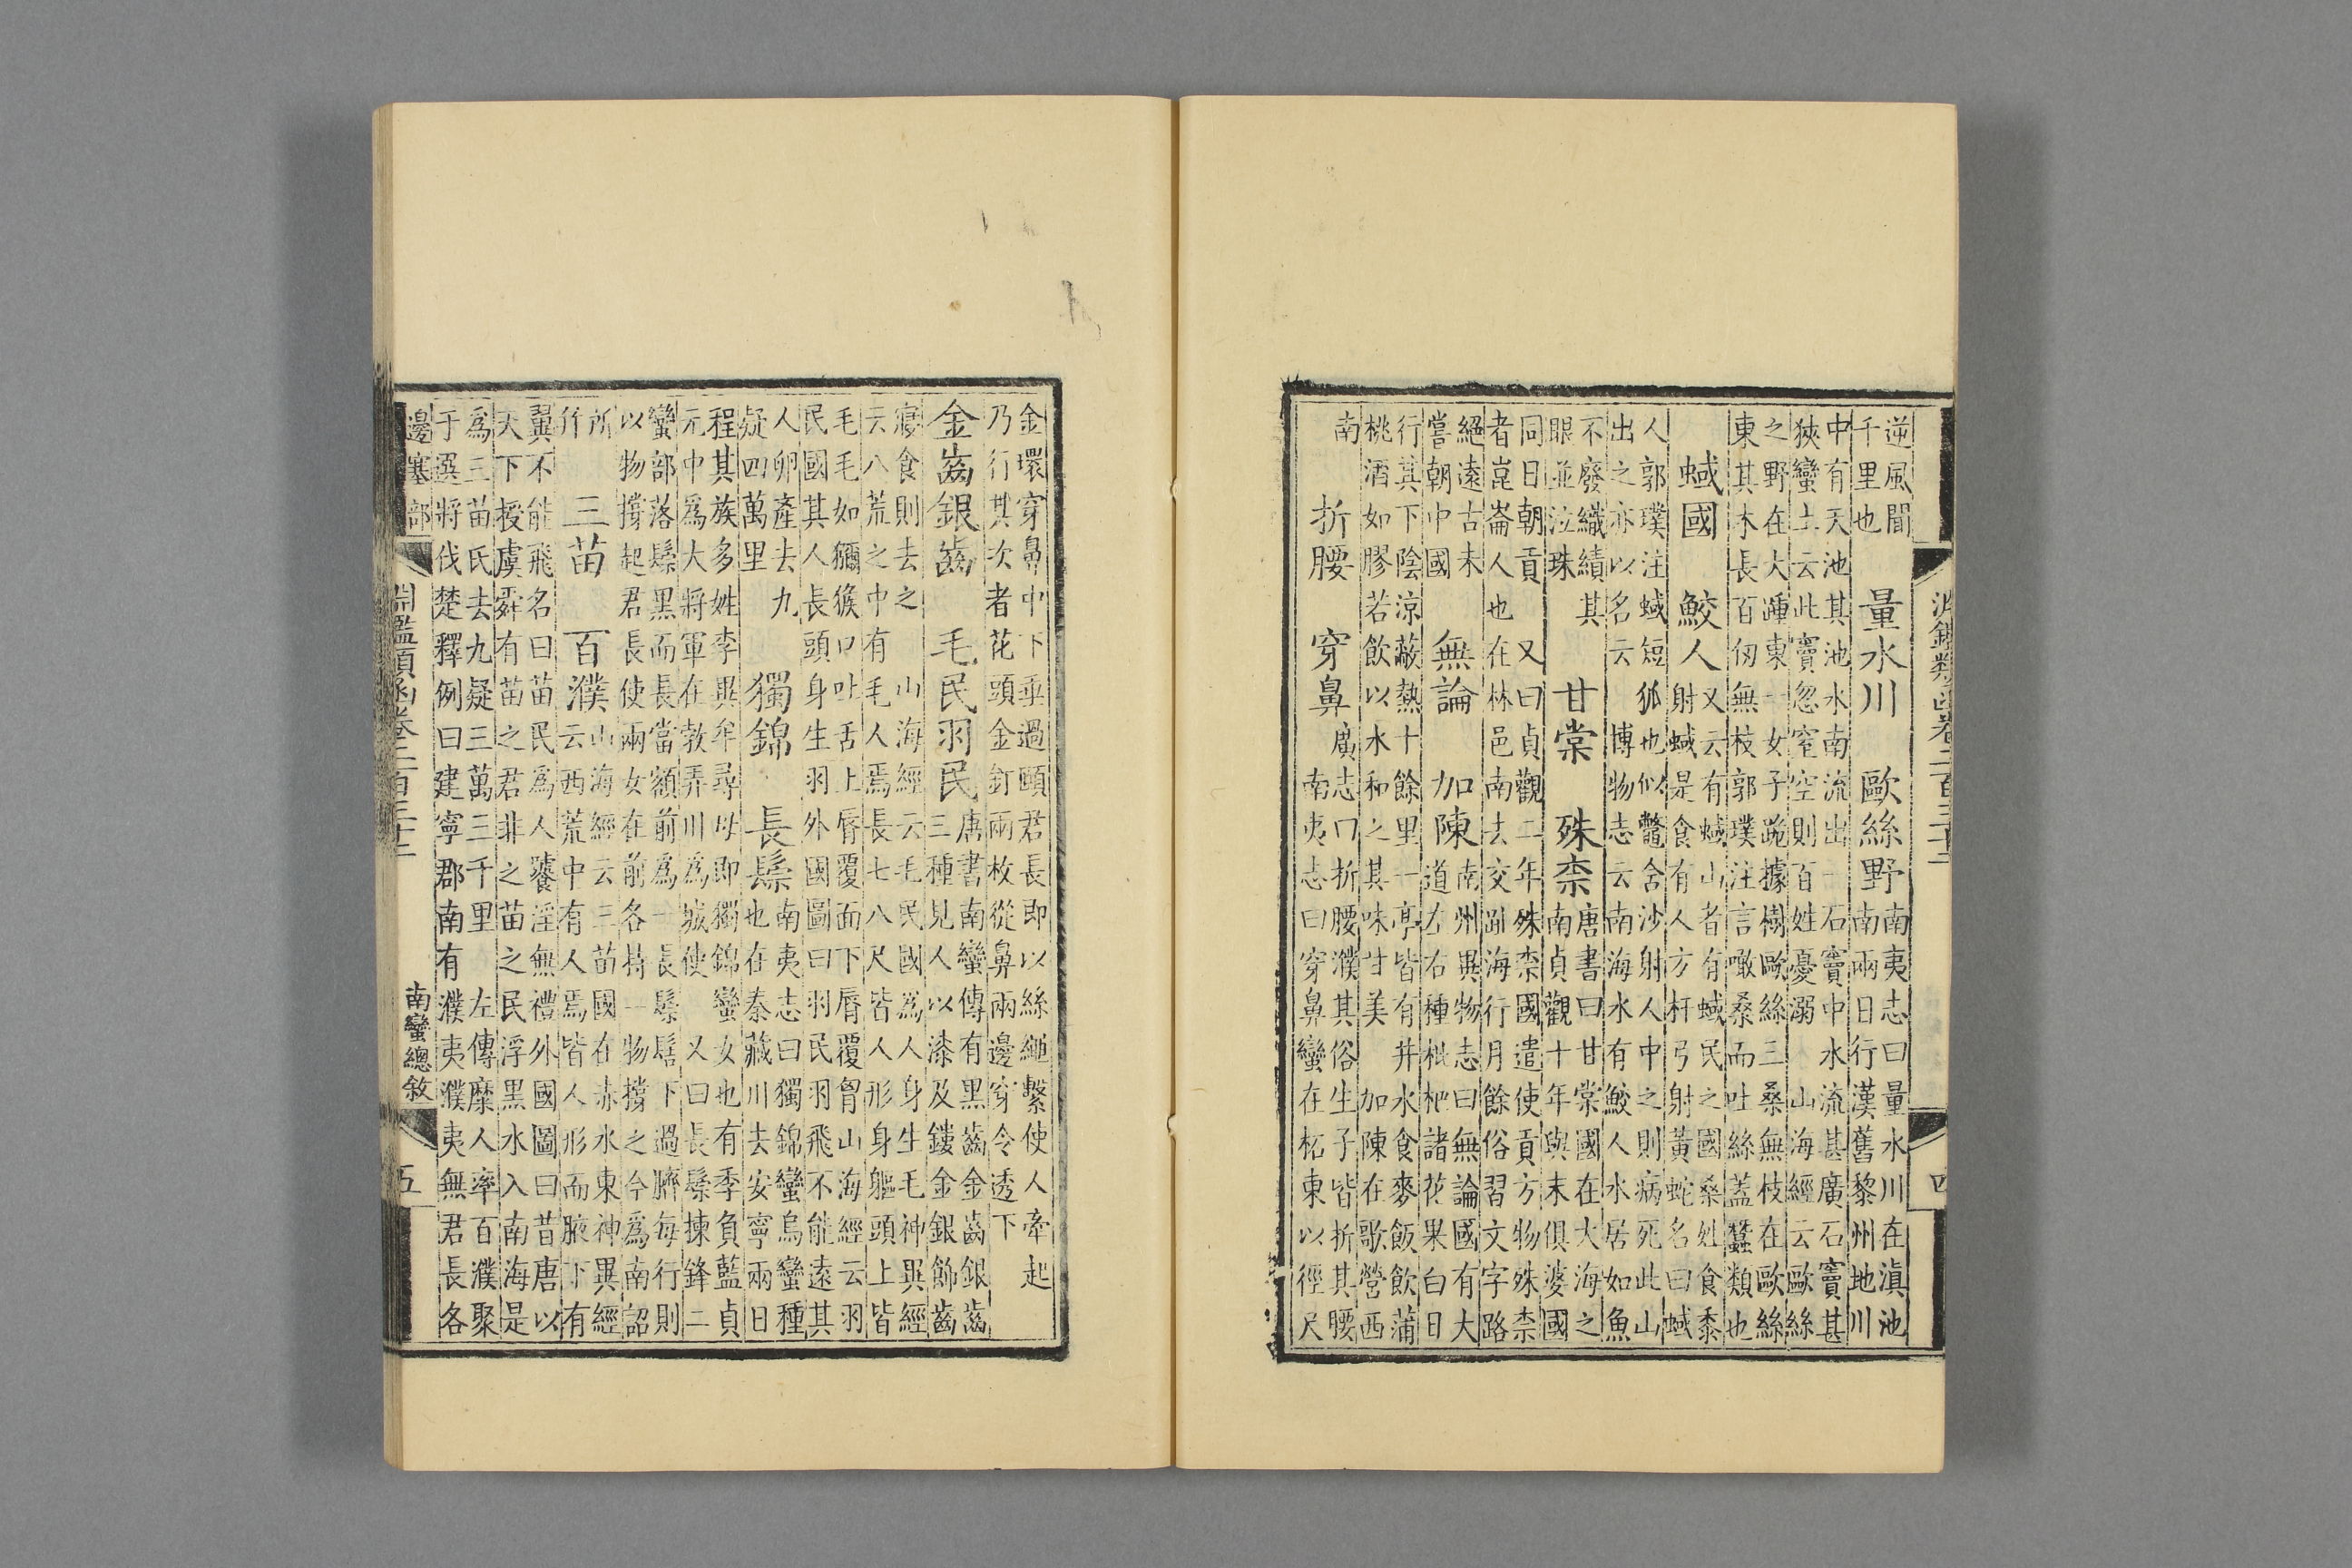 淵鑑類函卷二百三十三 四
逆風聞
千里也
量水川 歐絲野
南夷志曰量水川在滇池
南兩日行漢舊黎州地川
中有天池其池水南流出一石竇中水流甚廣石竇甚
狹蠻土云此竇忽窒空則百姓憂溺 山海經云歐絲
之野在大踵東一女子跪據樹歐絲三桑無枝在歐絲
東其木長百仞無枝郭璞注言噉桑而吐絲蓋蠶類也
蜮國 鮫人
又云有蜮山者有蜮民之國桑姓食黍
射蜮是食有人方杅弓射黃蛇名曰蜮
人郭璞注蜮短狐也似鼈含沙射人中之則病死此山
出之亦以名云 博物志云南海水有鮫人水居如魚
不廢織績其
眼並泣珠
甘棠 殊柰
唐書曰甘棠國在大海之
南貞觀十年與末俱婆國
同日朝貢 又曰貞觀二年殊柰國遣使貢方物殊柰
者崑崙人也在林邑南去交趾海行月餘俗習文字路
絕遠古未
嘗朝中國
無論 加陳
南州異物志曰無論國有大
道左右種枇杷諸花果白日
行其下陰涼蔽熱十餘里一亭皆有井水食麥飯飲蒲
桃酒如膠若飲以水和之其味甘美 加陳在歌營西
南
折腰 穿鼻
廣志曰折腰濮其俗生子皆折其腰
南夷志曰穿鼻蠻在柘東以徑尺
金環穿鼻中下垂過頤君長即以絲繩繫使人牽起
乃行其次者花頭金釘兩枚從鼻兩邊穿令透下
金齒銀齒 毛民羽民
唐書南蠻傳有黑齒金齒銀齒
三種見人以漆及鏤金銀飾齒
寢食則去之 山海經云毛民國為人身生毛神異經
云八荒之中有毛人焉長七八尺皆人形身軀頭上皆
毛毛如獼猴口吐舌上脣覆面下脣覆胷山海經云羽
民國其人長頭身生羽外國圖曰羽民羽飛不能遠其
人卵產去九
疑四萬里
獨錦 長鬃
南夷志曰獨錦蠻烏蠻種
也在秦藏川去安寧兩日
程其族多姓李異牟尋母即獨錦蠻女也有季負藍貞
元中為大將軍在敎弄川為城使 又曰長鬃揀鋒二
蠻部落鬃黑而長當額前為一長鬃髻下過臍每行則
以物撐起君長使兩女在前各持一物撐之今為南詔
所
并
三苗 百濮
山海經云三苗國在赤水東神異經
云西荒中有人焉皆人形而腋下有
翼不能飛名曰苗民為人饕淫無禮外國圖曰昔唐以
天下授虞舜有苗之君非之苗之民浮黑水入南海是
為三苗氏去九疑三萬三千里 左傳糜人率百濮聚
于選將伐楚釋例曰建寧郡南有濮夷濮夷無君長各
邊塞部 淵鑑類函卷二百三十三 南蠻總敘 五